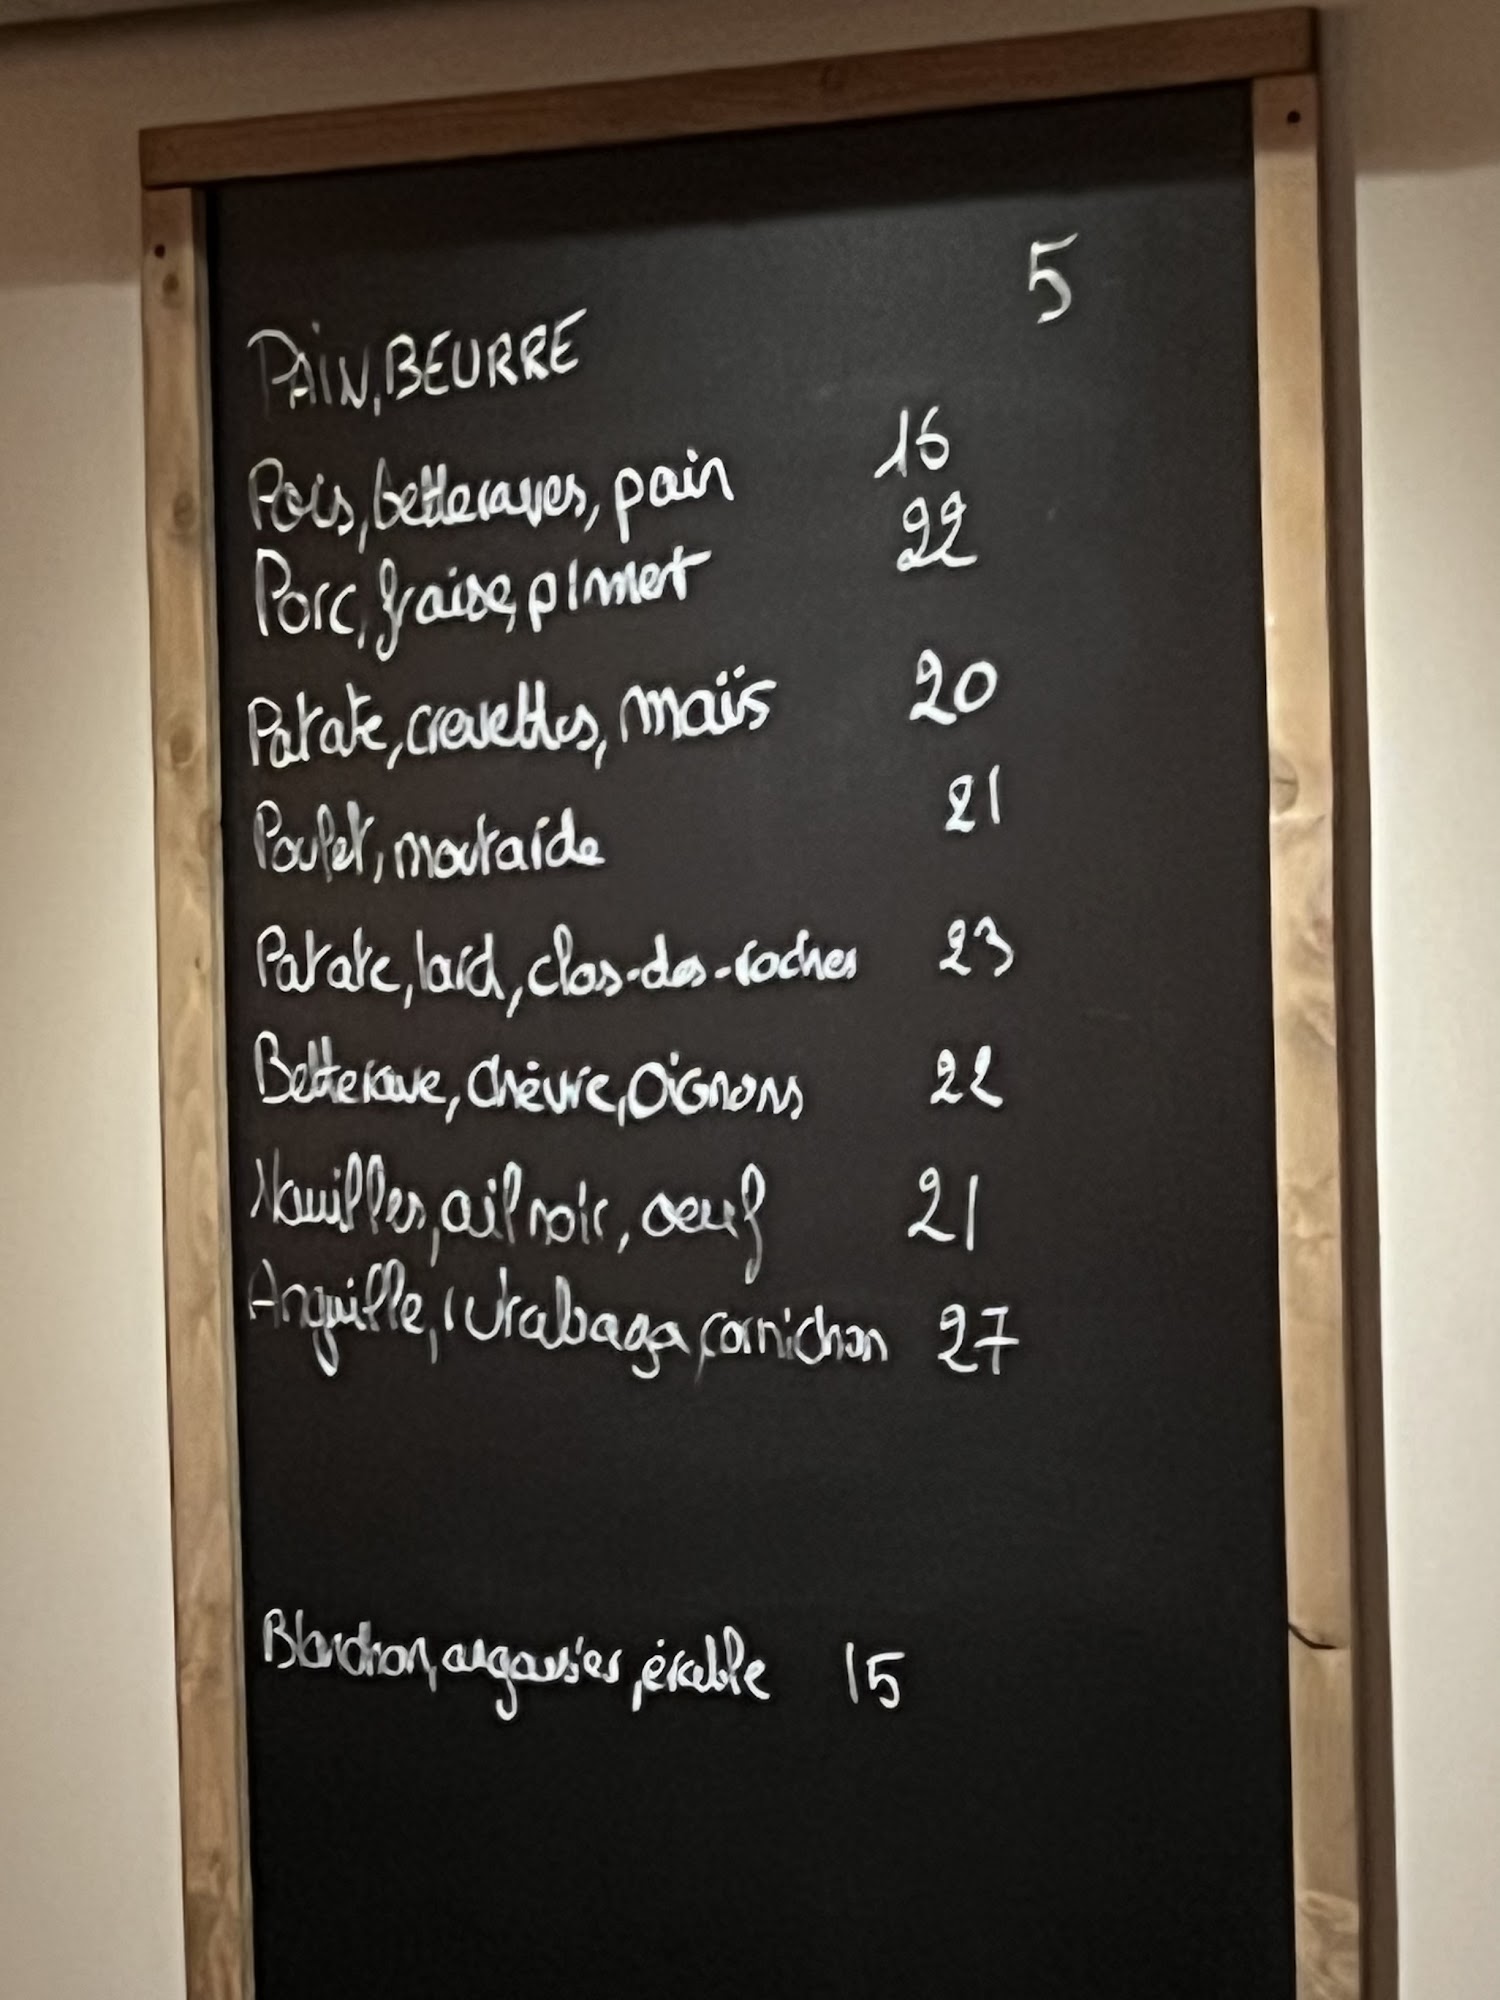 PAIN, BEURRE 5
Pois, betteraves, pain 16
Porc, fraise, piment 22
Patate, crevettes, maïs 20
Poulet, moutarde 21
Patate, lard, clos-des-roches 23
Betterave, chèvre, oignons 22
Nouilles, ail noir, oeuf 21
Anguille, rutabaga, cornichon 27
Blanchon, argousier, érable 15